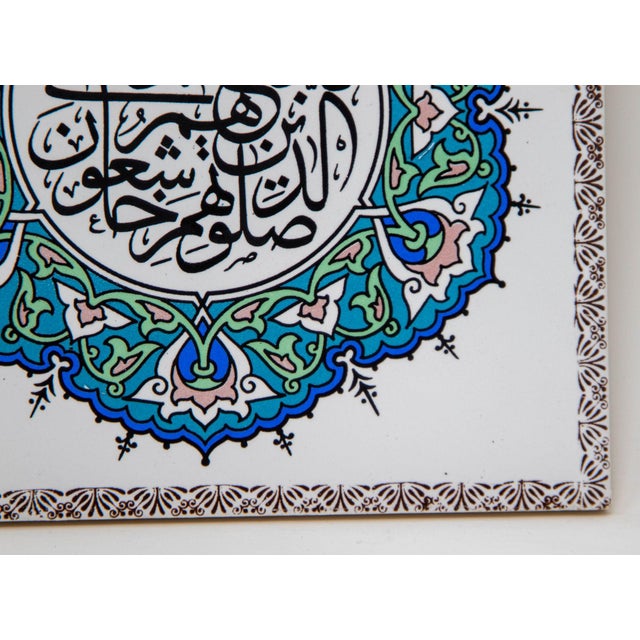 الذين هم
صلوتهم خاشعون